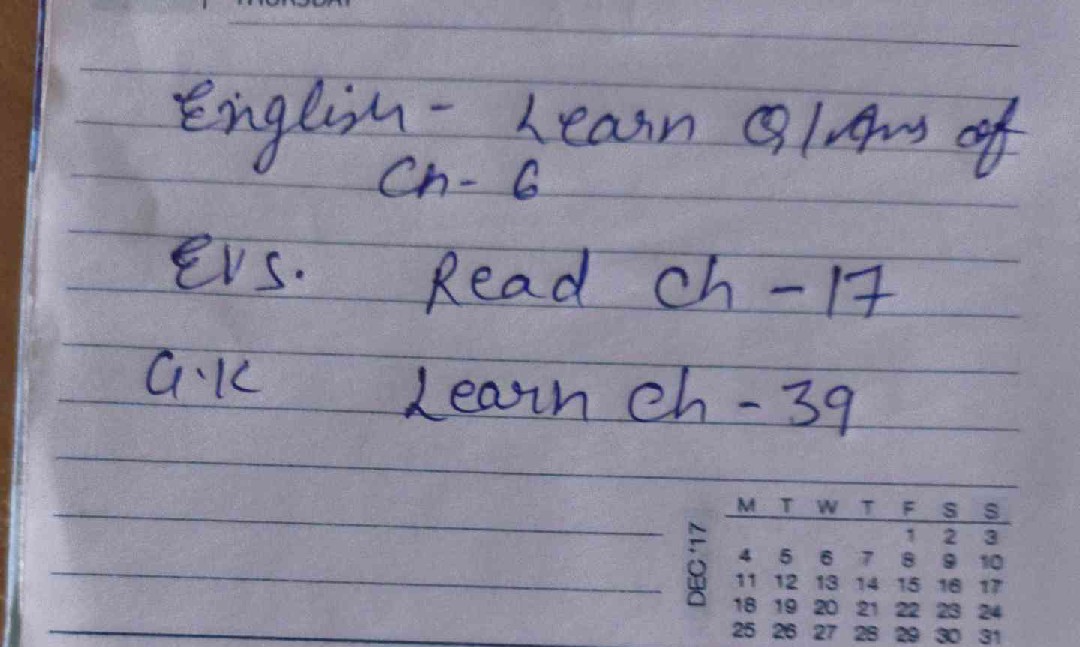 THURSDAY
English - Learn Q/Ans of
Ch- 6
EVS. Read Ch - 17
G.K Learn Ch - 39
DEC '17
M T W T F S S
1 2 3
4 5 6 7 8 9 10
11 12 13 14 15 16 17
18 19 20 21 22 23 24
25 26 27 28 29 30 31